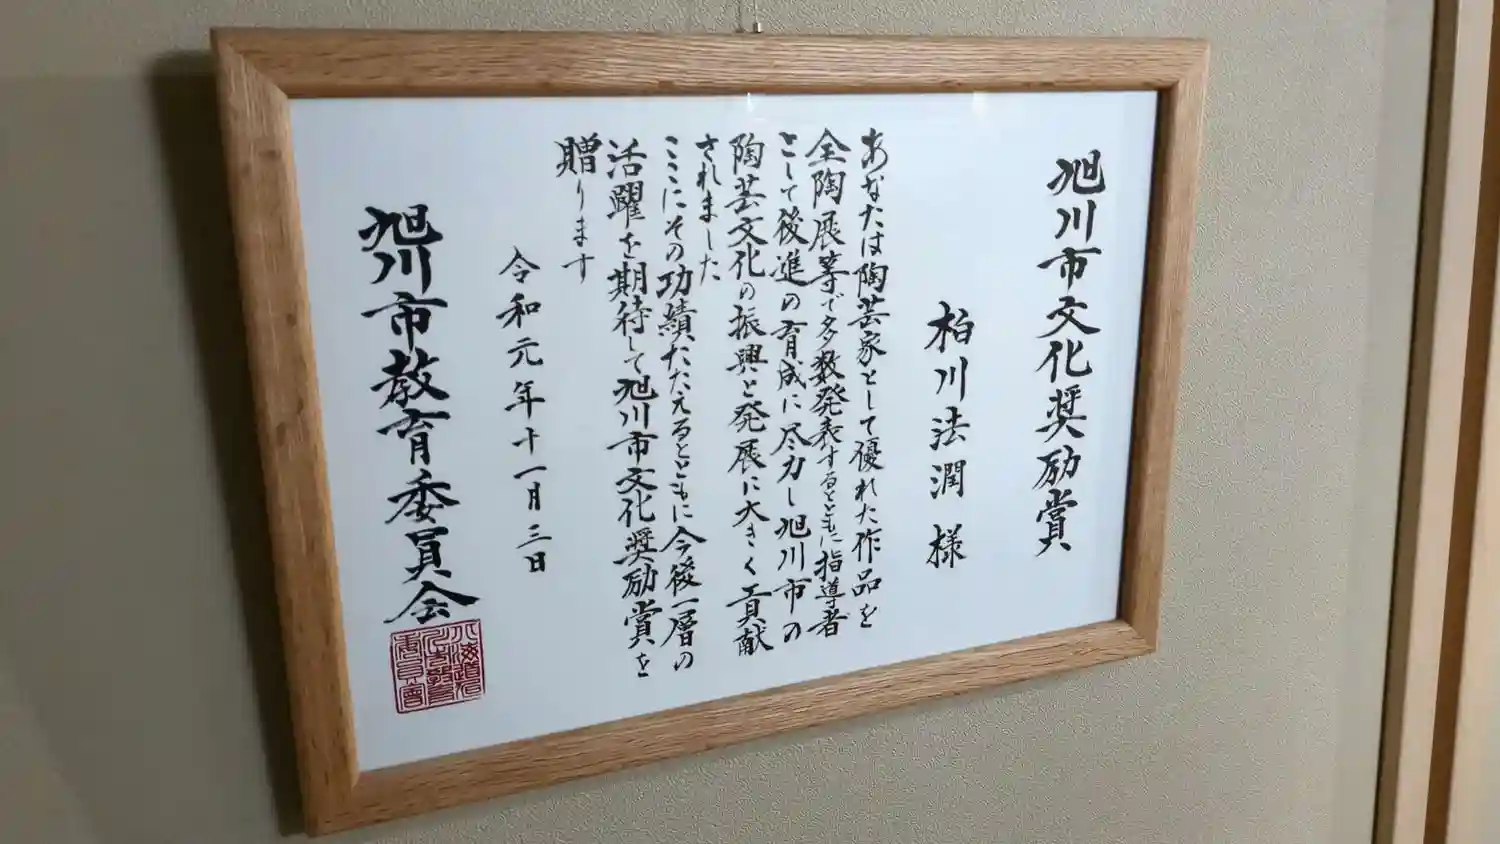 旭川市文化奨励賞
柏川法潤様
あなたは陶芸家として優れた作品を
全陶展等で多数発表するとともに指導者
として後進の育成に尽力し旭川市の
陶芸文化の振興と発展に大きく貢献
されました
ここにその功績たたえるとともに今後一層の
活躍を期待して旭川市文化奨励賞を
贈ります
令和元年十一月三日
旭川市教育委員会